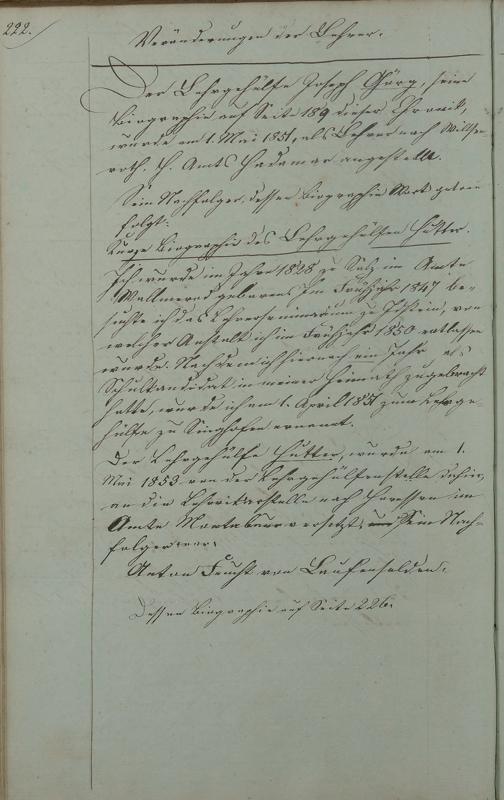 222.
Veränderungen der Lehrer.
Der Lehrgehülfe Joseph Görg, seine
Biographie auf Seite 189 dieser Chronik,
wurde am 1. Mai 1851, als Lehrer nach Willse-
roth, H. Amts Hadamar angestellt.
Sein Nachfolger, dessen Biographie Wort getreu
folgt:
Kurze Biographie des Lehrgehülfen Hutter.
Ich wurde im Jahre 1828 zu Sulz im Amte
Wallmerod geboren. Im Frühjahr 1847 be-
suchte ich das Lehrerseminarium zu Idstein, von
welcher Anstalt ich im Frühjahr 1850 entlassen
wurde. Nachdem ich hiernach ein Jahr als
Schulkandidat in meiner Heimath zugebracht
hatte, wurde ich am 1. April 1851 zum Lehrge-
hülfe zu Singhofen ernannt.
Der Lehrgehülfe Hutter, wurde am 1.
Mai 1853 von der Lehrgehülfenstelle dahier,
an die Lehrvikarstelle nach im
Amte versetzt, Sein Nach-
folger war:
Anton Feucht von Laufenselden.
Dessen Biographie auf Seite 226.